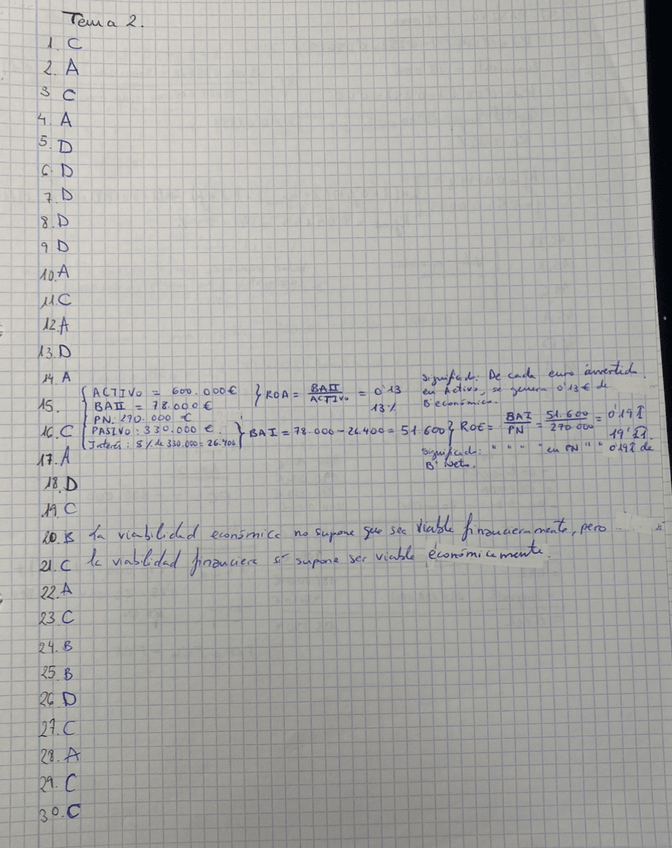 Tema 2.
1. C
2. A
3 C
4. A
5. D
6. D
7. D
8. D
9 D
10. A
11. C
12. A
13. D
14. A
15. ACTIVO = 600.000€
BAII = 78.000€
PN: 270.000 €
PASIVO: 330.000 €
Interés: 8% de 330.000 = 26.400
ROA = BAII / ACTIVO = 0'13
13%
Significado: De cada euro invertido
en Activo, se genera 0'13€ de
Bº económico.
BAI = 78.000 - 26.400 = 51.600
ROE = BAI / PN = 51.600 / 270.000 = 0'191
19'1%
Significado: " " " " en PN " " 0'191 de
Bº Neto.
16. C
17. A
18. D
19. C
20. B La viabilidad económica no supone que sea viable financieramente, pero
21. C la viabilidad financiera sí supone ser viable económicamente.
22. A
23. C
24. B
25. B
26. D
27. C
28. A
29. C
30. C